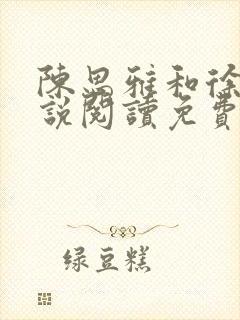 陳思雅和徐
說閱讀免費
绿豆糕